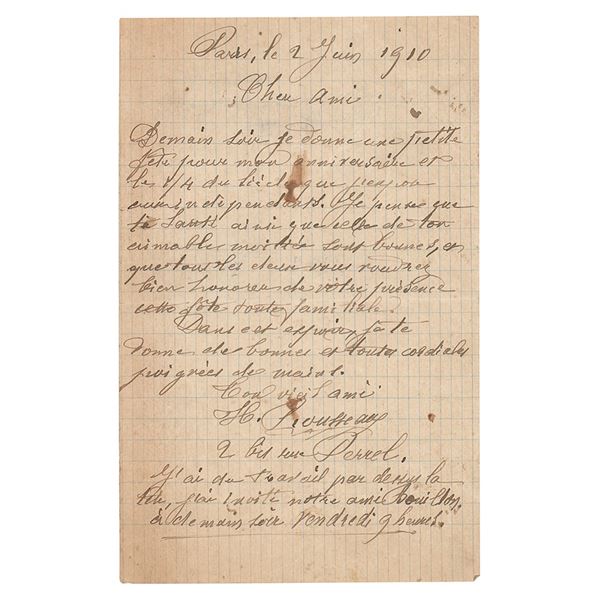 Paris, le 2 Juin 1910
Cher Ami
Demain soir je donne une petite
fête pour mon anniversaire et
le 1/4 du siècle que j'expose
aux indépendants. Je pense que
ta santé ainsi que celle de ton
aimable moitié sont bonnes, et
que tous les deux vous voudrez
bien honorer de votre présence
cette fête toute familiale.
Dans cet espoir, je te
donne de bonnes et toutes cordiales
poignées de mains.
Ton vieil ami
H. Rousseau
2 bis rue Perrel.
J'ai du travail par dessus la
tête, j'ai invité notre ami
à demain soir Vendredi 9 heures.